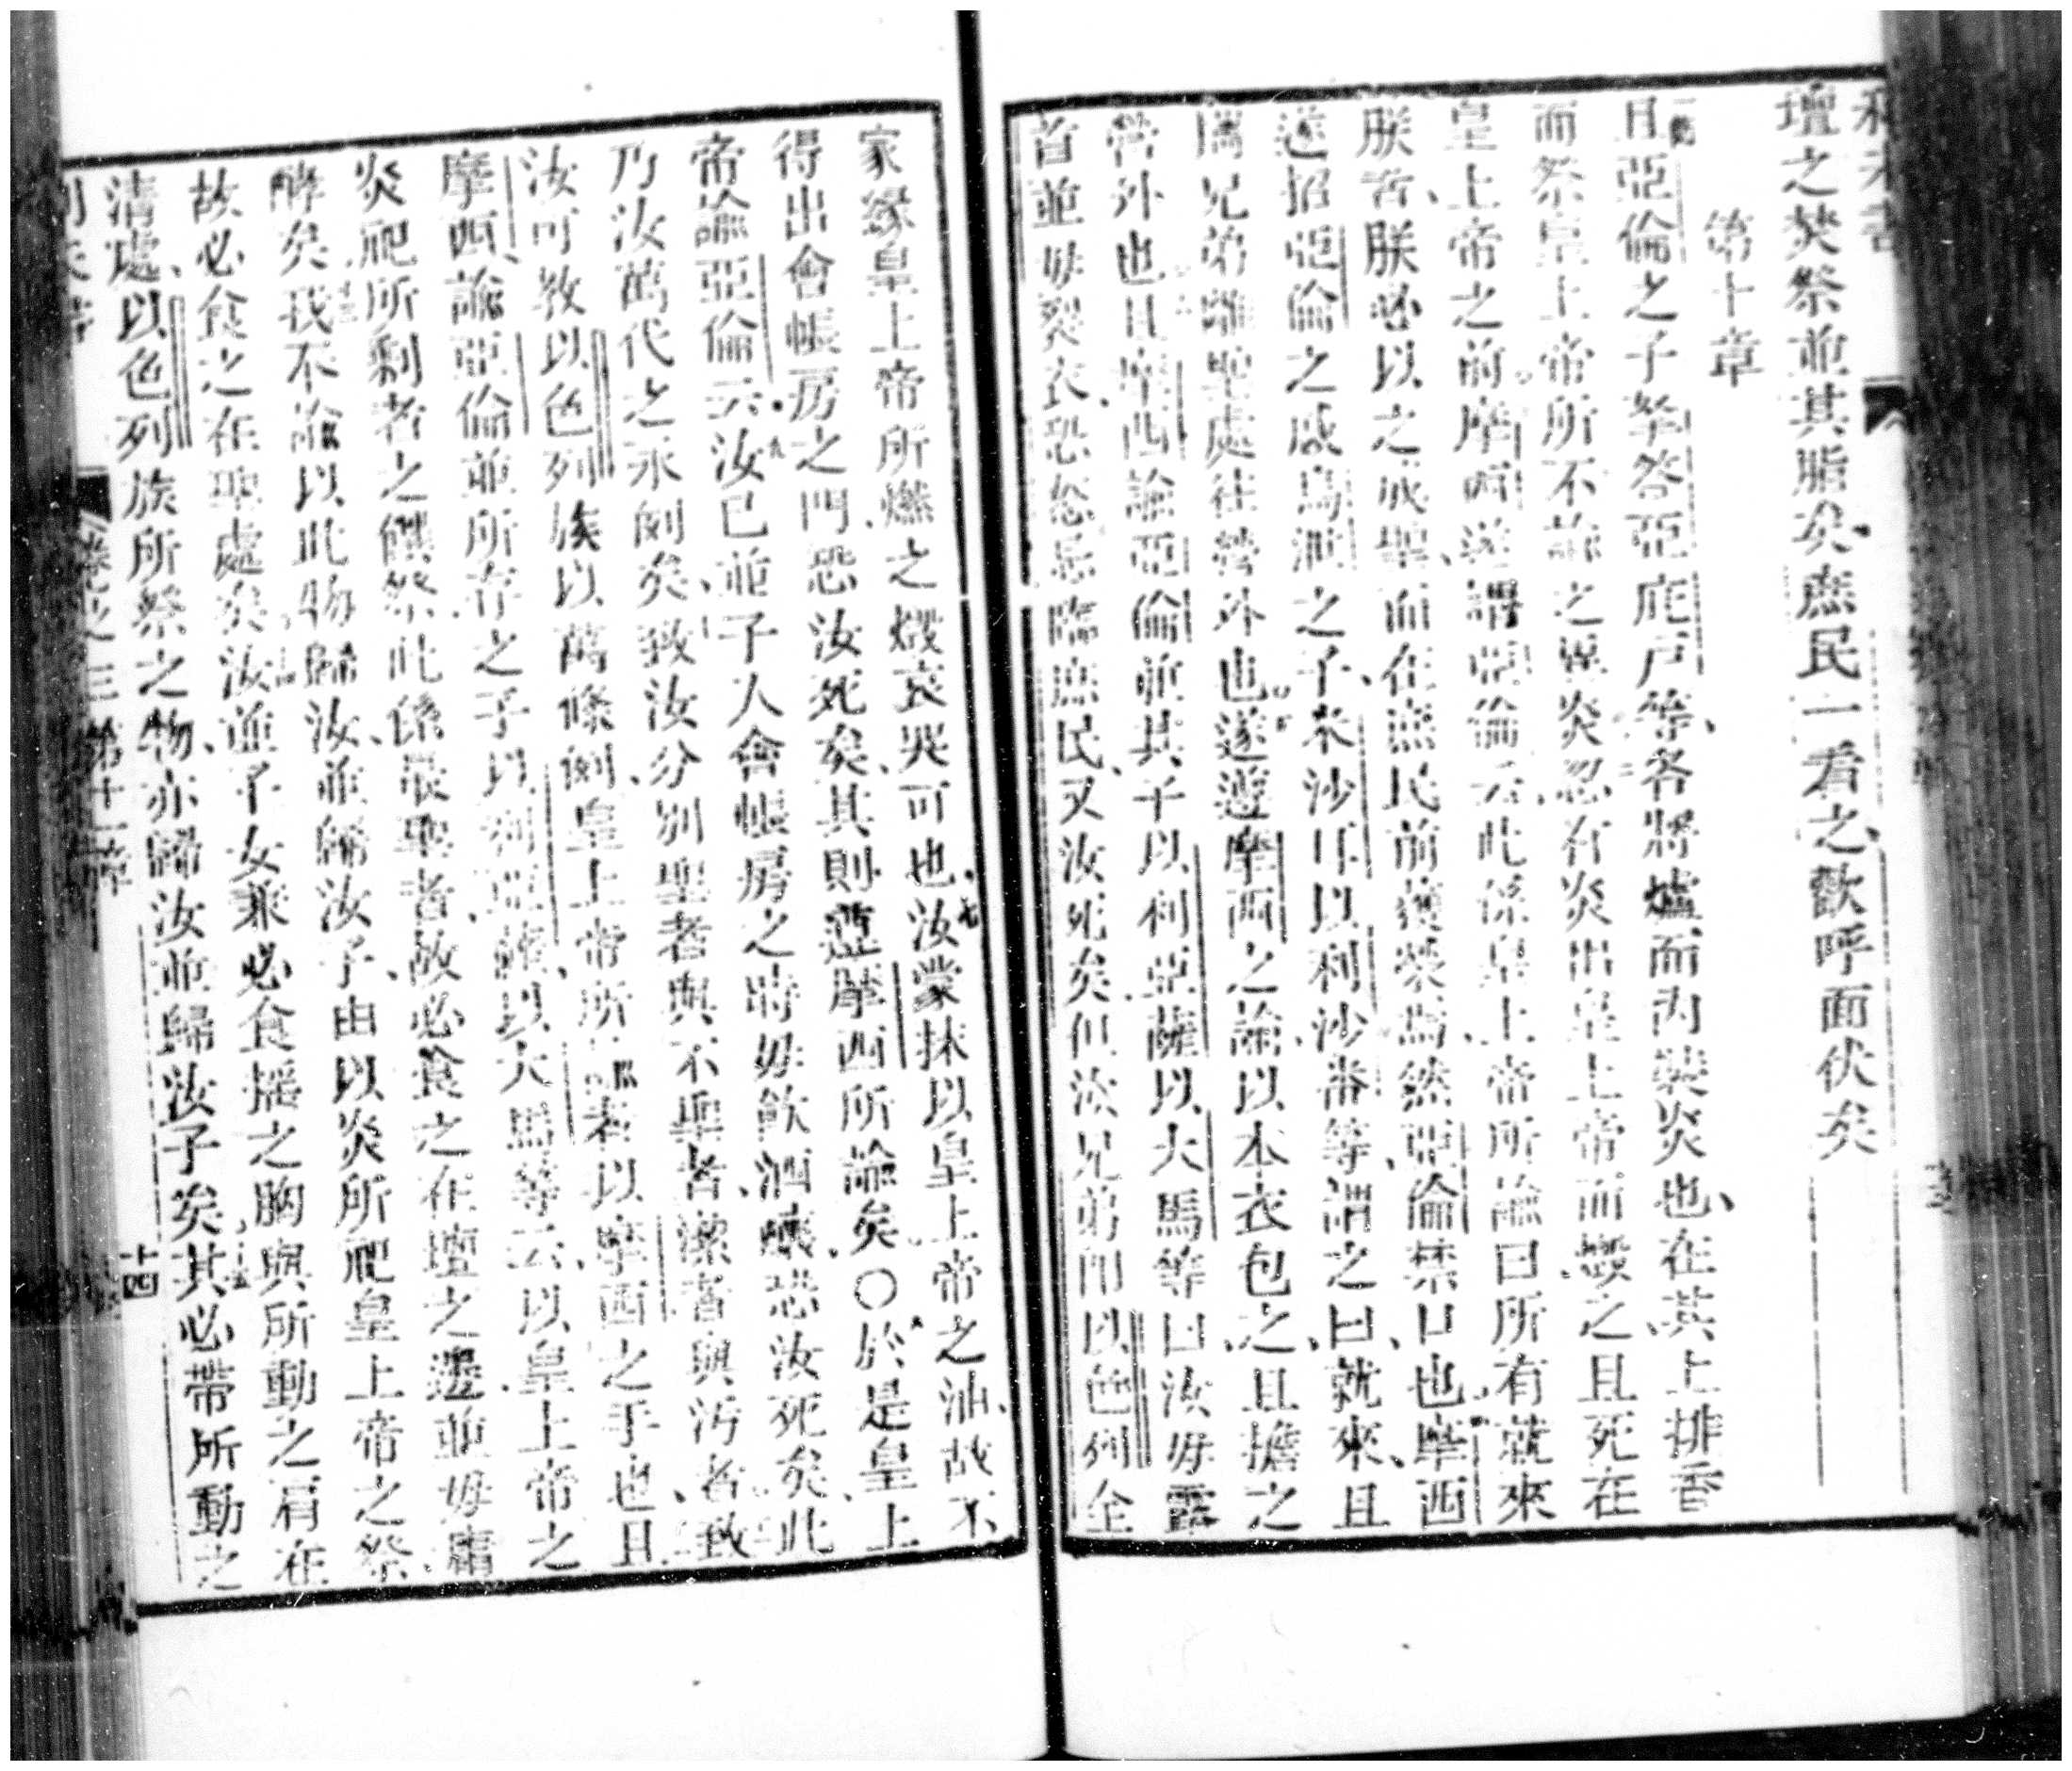 壇之焚祭並其脂矣庶民一看之歡呼面伏矣
第十章
且亞倫之子拏答亞庇戸等各將爐而內裝炎也在其上排香
而祭皇上帝所不諭之異炎忽有炎出皇上帝而燬之且死在
皇上帝之前摩西遂謂亞倫云此係皇上帝所諭曰所有就來
朕者朕必以之成聖而在庶民前獲榮焉然亞倫禁口也摩西
遂招亞倫之戚烏泄之子米沙耳以利沙番等謂之曰就來且
攜兄弟離聖處往營外也遂遵摩西之諭以本衣包之且擔之
營外也且摩西諭亞倫並其子以利亞薩以大馬等曰汝毋露
首並毋裂衣恐怒忌臨庶民又汝死矣但汝兄弟即以色列全
家緣皇上帝所燃之燬哀哭可也汝蒙抹以皇上帝之油故不
得出會帳房之門恐汝死矣其則遵摩西所諭矣〇於是皇上
帝諭亞倫云汝已並子人會帳房之時毋飲酒醺恐汝死矣此
乃汝萬代之永例矣致汝分別聖者與不聖者潔者與污者致
汝可教以色列族以萬條例皇上帝所諭者以摩西之手也且
摩西諭亞倫並所存之子以利亞薩以大馬等云以皇上帝之
炎爬所剩者之饌祭此係最聖者故必食之在壇之邊並毋庸
酵矣我不諭以此物歸汝並歸汝子由以炎所爬皇上帝之祭
故必食之在聖處矣汝並子女兼必食搖之胸與所動之肩在
清處以色列族所祭之物亦歸汝並歸汝子矣其必帶所動之
十四